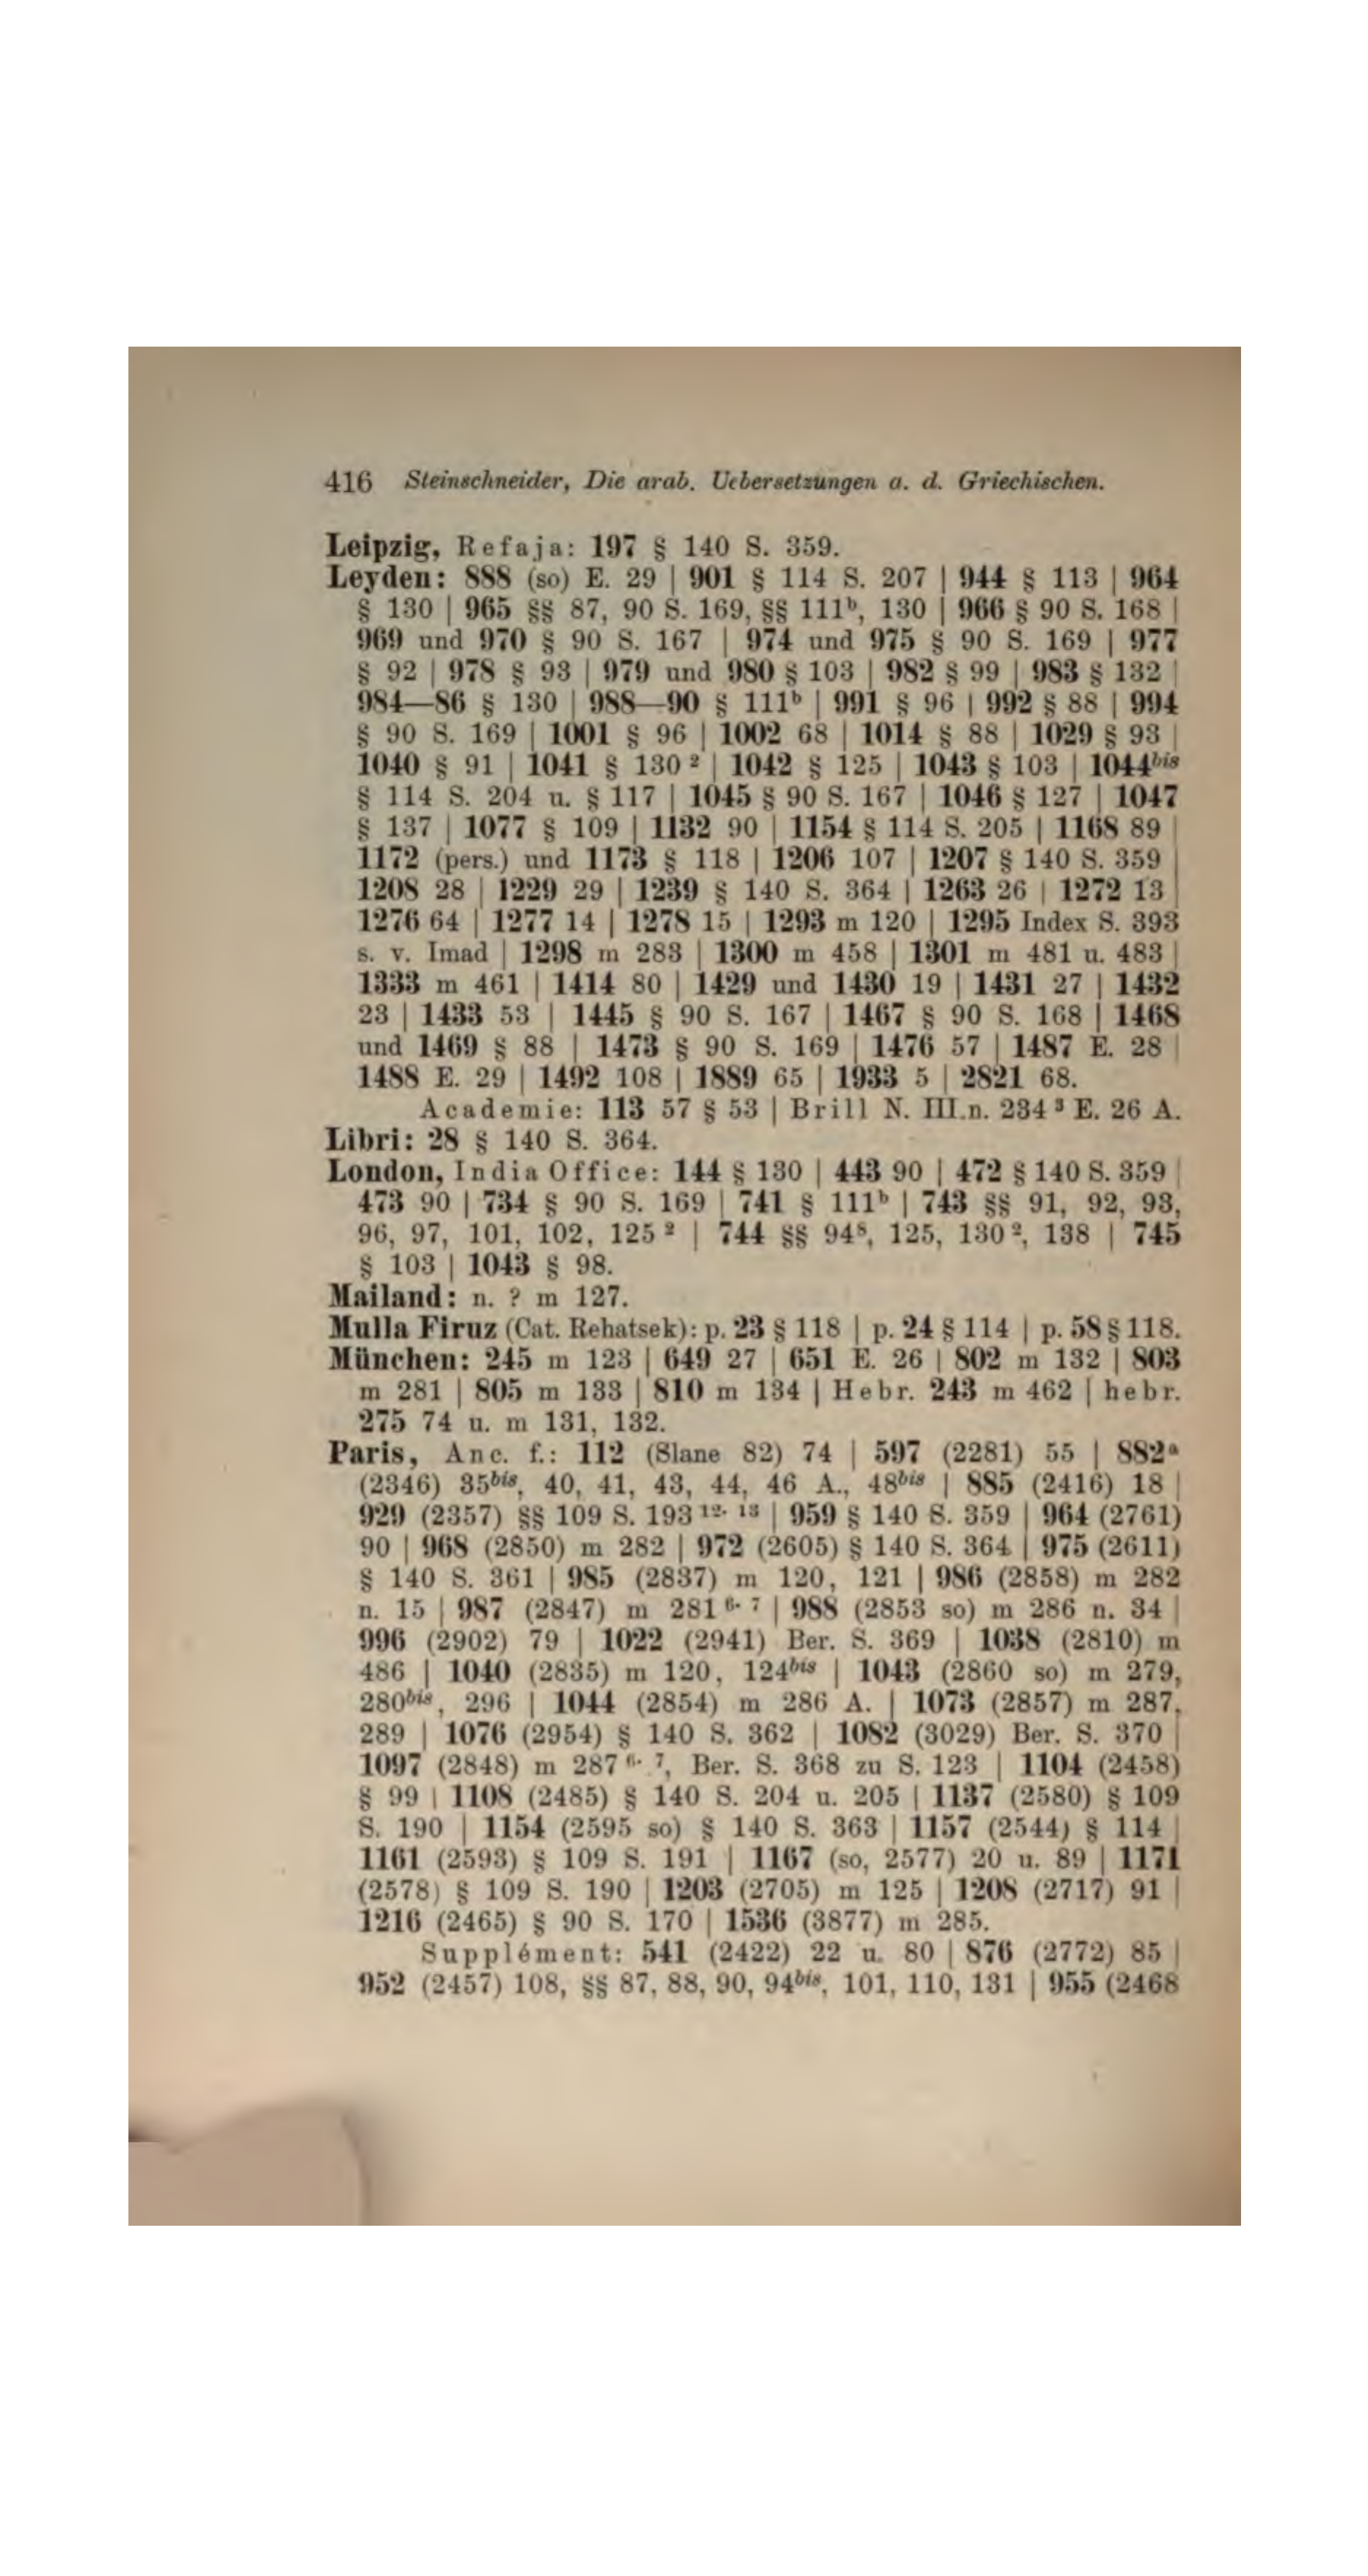 416 Steinschneider, Die arab. Uebersetzungen a. d. Griechischen.
Leipzig, Refaja: 197 § 140 S. 359.
Leyden: 888 (so) E. 29 | 901 § 114 S. 207 | 944 § 113 | 964
§ 130 | 965 §§ 87, 90 S. 169, §§ 111ᵇ, 130 | 966 § 90 S. 168 |
969 und 970 § 90 S. 167 | 974 und 975 § 90 S. 169 | 977
§ 92 | 978 § 93 | 979 und 980 § 103 | 982 § 99 | 983 § 132 |
984—86 § 130 | 988—90 § 111ᵇ | 991 § 96 | 992 § 88 | 994
§ 90 S. 169 | 1001 § 96 | 1002 68 | 1014 § 88 | 1029 § 93 |
1040 § 91 | 1041 § 130 ² | 1042 § 125 | 1043 § 103 | 1044bis
§ 114 S. 204 u. § 117 | 1045 § 90 S. 167 | 1046 § 127 | 1047
§ 137 | 1077 § 109 | 1132 90 | 1154 § 114 S. 205 | 1168 89 |
1172 (pers.) und 1173 § 118 | 1206 107 | 1207 § 140 S. 359 |
1208 28 | 1229 29 | 1239 § 140 S. 364 | 1263 26 | 1272 13 |
1276 64 | 1277 14 | 1278 15 | 1293 m 120 | 1295 Index S. 393
s. v. Imad | 1298 m 283 | 1300 m 458 | 1301 m 481 u. 483 |
1333 m 461 | 1414 80 | 1429 und 1430 19 | 1431 27 | 1432
23 | 1433 53 | 1445 § 90 S. 167 | 1467 § 90 S. 168 | 1468
und 1469 § 88 | 1473 § 90 S. 169 | 1476 57 | 1487 E. 28 |
1488 E. 29 | 1492 108 | 1889 65 | 1933 5 | 2821 68.
Academie: 113 57 § 53 | Brill N. III.n. 234 ³ E. 26 A.
Libri: 28 § 140 S. 364.
London, India Office: 144 § 130 | 443 90 | 472 § 140 S. 359 |
473 90 | 734 § 90 S. 169 | 741 § 111ᵇ | 743 §§ 91, 92, 93,
96, 97, 101, 102, 125 ² | 744 §§ 94⁸, 125, 130 ², 138 | 745
§ 103 | 1043 § 98.
Mailand: n. ? m 127.
Mulla Firuz (Cat. Rehatsek): p. 23 § 118 | p. 24 § 114 | p. 58 § 118.
München: 245 m 123 | 649 27 | 651 E. 26 | 802 m 132 | 803
m 281 | 805 m 133 | 810 m 134 | Hebr. 243 m 462 | hebr.
275 74 u. m 131, 132.
Paris, Anc. f.: 112 (Slane 82) 74 | 597 (2281) 55 | 882ᵃ
(2346) 35bis, 40, 41, 43, 44, 46 A., 48bis | 885 (2416) 18 |
929 (2357) §§ 109 S. 193 ¹²· ¹³ | 959 § 140 S. 359 | 964 (2761)
90 | 968 (2850) m 282 | 972 (2605) § 140 S. 364 | 975 (2611)
§ 140 S. 361 | 985 (2837) m 120, 121 | 986 (2858) m 282
n. 15 | 987 (2847) m 281 ⁶· ⁷ | 988 (2853 so) m 286 n. 34 |
996 (2902) 79 | 1022 (2941) Ber. S. 369 | 1038 (2810) m
486 | 1040 (2835) m 120, 124bis | 1043 (2860 so) m 279,
280bis, 296 | 1044 (2854) m 286 A. | 1073 (2857) m 287,
289 | 1076 (2954) § 140 S. 362 | 1082 (3029) Ber. S. 370 |
1097 (2848) m 287 ⁶· ⁷, Ber. S. 368 zu S. 123 | 1104 (2458)
§ 99 | 1108 (2485) § 140 S. 204 u. 205 | 1137 (2580) § 109
S. 190 | 1154 (2595 so) § 140 S. 363 | 1157 (2544) § 114 |
1161 (2593) § 109 S. 191 | 1167 (so, 2577) 20 u. 89 | 1171
(2578) § 109 S. 190 | 1203 (2705) m 125 | 1208 (2717) 91 |
1216 (2465) § 90 S. 170 | 1536 (3877) m 285.
Supplément: 541 (2422) 22 u. 80 | 876 (2772) 85 |
952 (2457) 108, §§ 87, 88, 90, 94bis, 101, 110, 131 | 955 (2468